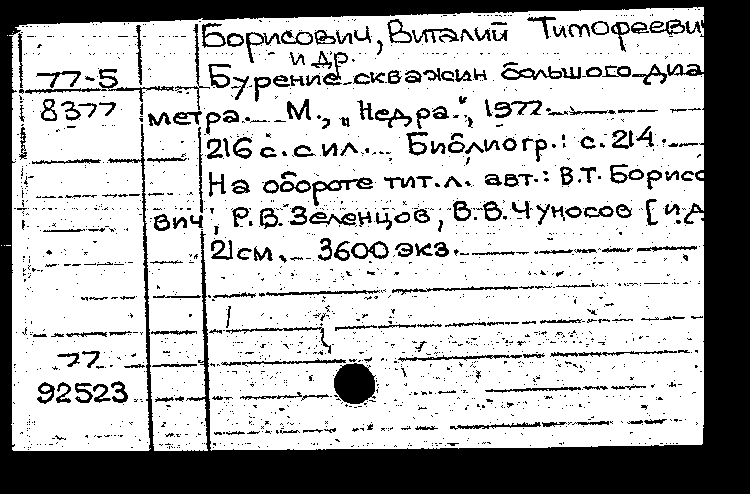 Борисович, Виталий Тимофееви
и др.
77-5 Бурение скважин большого диа
8377 метра. М., „Недра", 1977.
216 с. с ил. Библиогр.: с. 214.
На обороте тит. л. авт.: В.Т. Борисо
вич, Р.В. Зеленцов, В.В. Чуносов [и д
21 см. 3600 экз.
77
92523